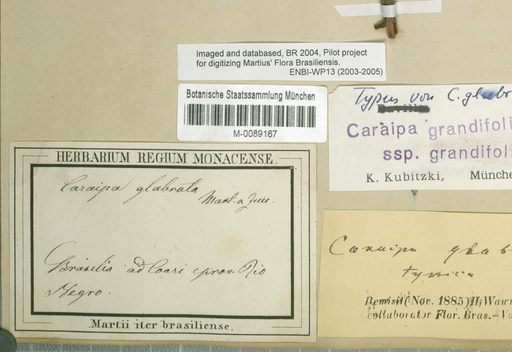 Imaged and databased, BR 2004, Pilot project
for digitizing Martius' Flora Brasiliensis.
ENBI-WP13 (2003-2005)
Botanische Staatssammlung München
M-0089167
Typus von C. glabr
Caraipa grandifoli
ssp. grandifol
K. Kubitzki, Münche
HERBARIUM REGIUM MONACENSE.
Caraipa glabrata
Mart. a Zucc.
Brasilia ad Coari prov. Rio
Negro.
Martii iter brasiliense.
Caraipa glab
typica
Remisit (Nov. 1885) H. Wawr
collaborator Flor. Bras.—Va